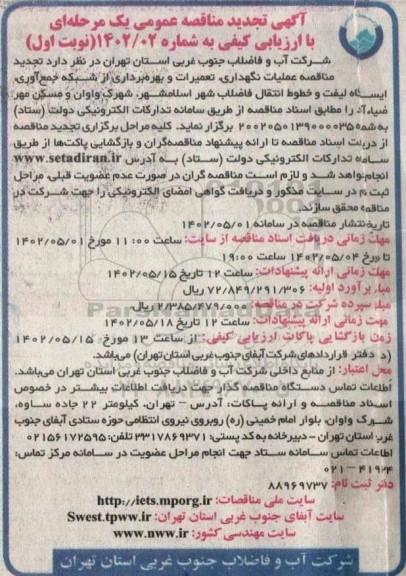 آگهی تجدید مناقصه عمومی یک مرحله‌ای
با ارزیابی کیفی به شماره ۱۴۰۲/۰۲(نوبت اول)
شرکت آب و فاضلاب جنوب غربی استان تهران در نظر دارد تجدید
مناقصه عملیات نگهداری، تعمیرات و بهره‌برداری از شبکه جمع‌آوری،
ایستگاه لیفت و خطوط انتقال فاضلاب شهر اسلامشهر، شهرک واوان و مسکن مهر
ضیاءآباد را مطابق اسناد مناقصه از طریق سامانه تدارکات الکترونیکی دولت (ستاد)
به شماره ۲۰۰۲۰۵۰۱۳۹۰۰۰۰۳۵ برگزار نماید. کلیه مراحل برگزاری تجدید مناقصه
از دریافت اسناد مناقصه تا ارائه پیشنهاد مناقصه‌گران و بازگشایی پاکت‌ها از طریق
سامانه تدارکات الکترونیکی دولت (ستاد) به آدرس www.setadiran.ir
انجام خواهد شد و لازم است مناقصه گران در صورت عدم عضویت قبلی، مراحل
ثبت نام در سایت مذکور و دریافت گواهی امضای الکترونیکی را جهت شرکت در
مناقصه محقق سازند.
تاریخ انتشار مناقصه در سامانه ۱۴۰۲/۰۵/۰۱
مهلت زمانی دریافت اسناد مناقصه از سایت: ساعت ۱۱:۰۰ مورخ ۱۴۰۲/۰۵/۰۱
تا مورخ ۱۴۰۲/۰۵/۰۴ ساعت ۱۹:۰۰
مهلت زمانی ارائه پیشنهادات: ساعت ۱۲ تاریخ ۱۴۰۲/۰۵/۱۵
مبلغ برآورد اولیه: ۷۲/۸۴۹/۲۹۱/۳۰۶ ریال
مبلغ سپرده شرکت در مناقصه: ۲/۳۸۵/۴۷۹/۰۰۰ ریال
مهلت زمانی ارائه پیشنهادات: ساعت ۱۲ تاریخ ۱۴۰۲/۰۵/۱۸
زمان بازگشایی پاکات ارزیابی کیفی: از ساعت ۱۳ مورخ ۱۴۰۲/۰۵/۱۵
(در دفتر قراردادهای شرکت آبفای جنوب غربی استان تهران) می‌باشد.
محل اعتبار: از منابع داخلی شرکت آب و فاضلاب جنوب غربی استان تهران می‌باشد.
اطلاعات تماس دستگاه مناقصه گذار جهت دریافت اطلاعات بیشتر در خصوص
اسناد مناقصه و ارائه پاکات: آدرس - تهران، کیلومتر ۲۲ جاده ساوه،
شهرک واوان، بلوار امام خمینی (ره) روبروی نیروی انتظامی حوزه ستادی آبفای جنوب
غرب استان تهران - دبیرخانه به کد پستی: ۳۳۱۷۸۶۹۳۷۱ تلفن: ۰۲۱۵۶۱۷۲۵۹۵
اطلاعات تماس سامانه ستاد جهت انجام مراحل عضویت در سامانه مرکز تماس:
۰۲۱-۴۱۹۳۴
دفتر ثبت نام: ۸۸۹۶۹۷۳۷
سایت ملی مناقصات: http://iets.mporg.ir
سایت آبفای جنوب غربی استان تهران: Swest.tpww.ir
سایت مهندسی کشور: www.nww.ir
شرکت آب و فاضلاب جنوب غربی استان تهران